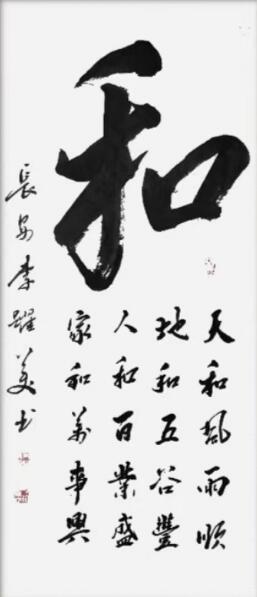 和
天和風雨順
地和五谷豐
人和百業盛
家和萬事興
長安李躍美书